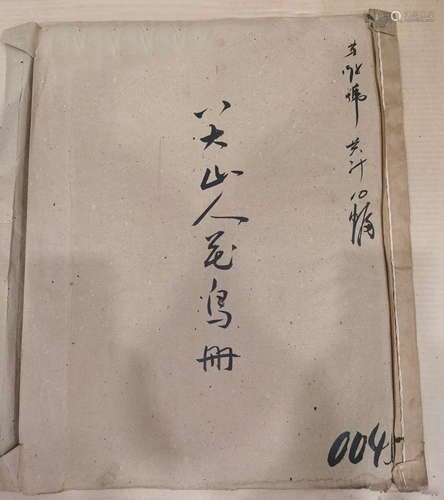 共计10幅
八大山人花鸟册
0045